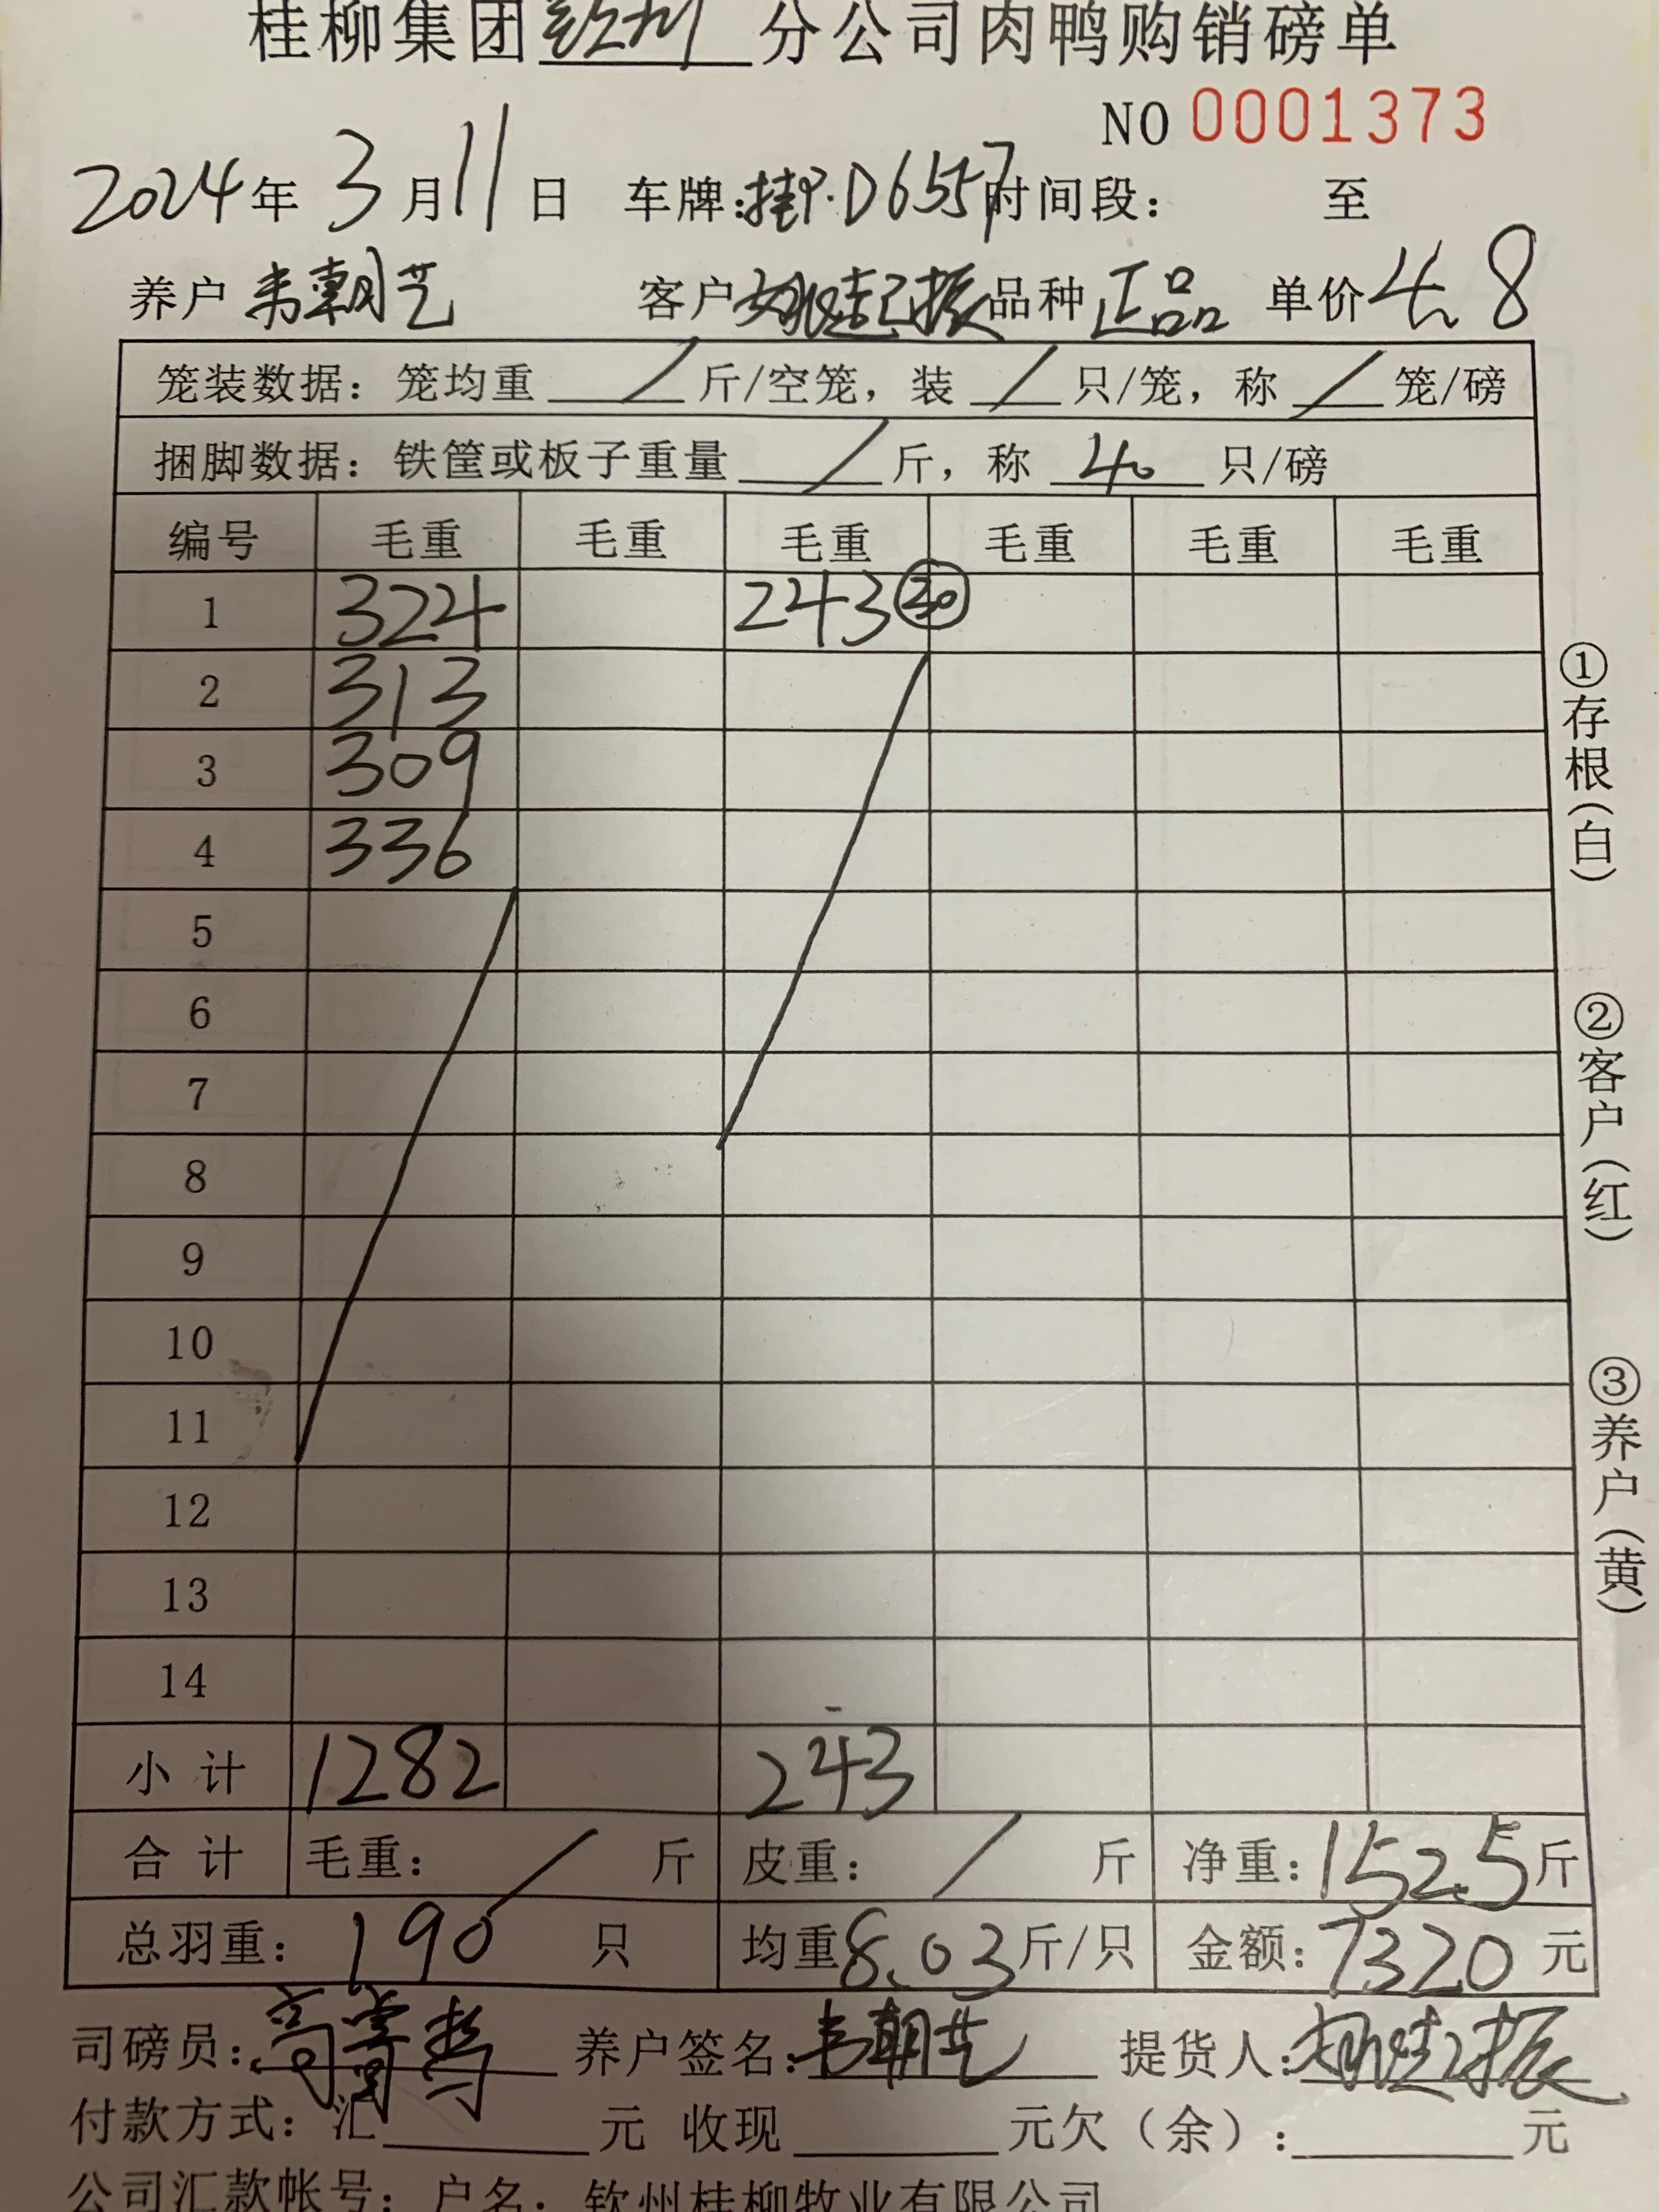 桂柳集团钦州分公司肉鸭购销磅单
NO 0001373
2024年3月11日 车牌:桂P·D6557时间段: 至
养户 韦朝艺 客户 姚起振 品种 正品 单价 4.8
笼装数据:笼均重 / 斤/空笼,装 / 只/笼,称 / 笼/磅
捆脚数据:铁筐或板子重量 / 斤,称 40 只/磅
编号 毛重 毛重 毛重 毛重 毛重 毛重
1 324 243 30
2 313
3 309
4 336
5
6
7
8
9
10
11
12
13
14
小计 1282 243
合计 毛重: / 斤 皮重: / 斤 净重:1525斤
总羽重:190只 均重8.03斤/只 金额:7320元
①存根(白)
②客户(红)
③养户(黄)
司磅员: 养户签名:韦朝艺 提货人:姚起振
付款方式:汇 元 收现 元欠(余): 元
公司汇款帐号:户名:钦州桂柳牧业有限公司